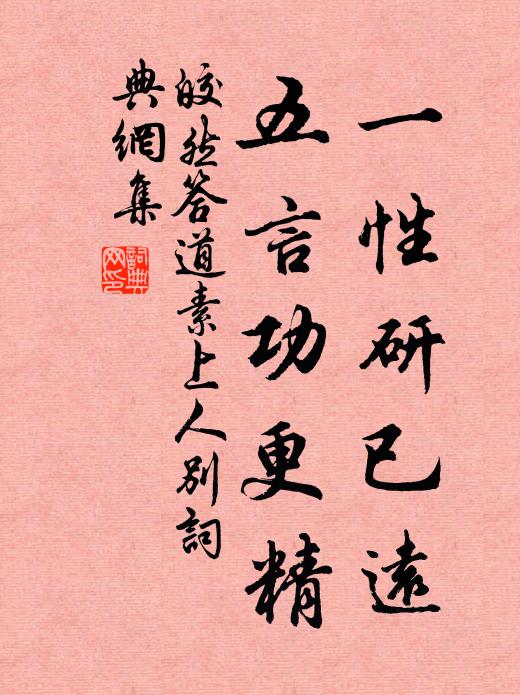 一性研已遠
五言功更精
皎然答道素上人別詞
典網集
詞典網印